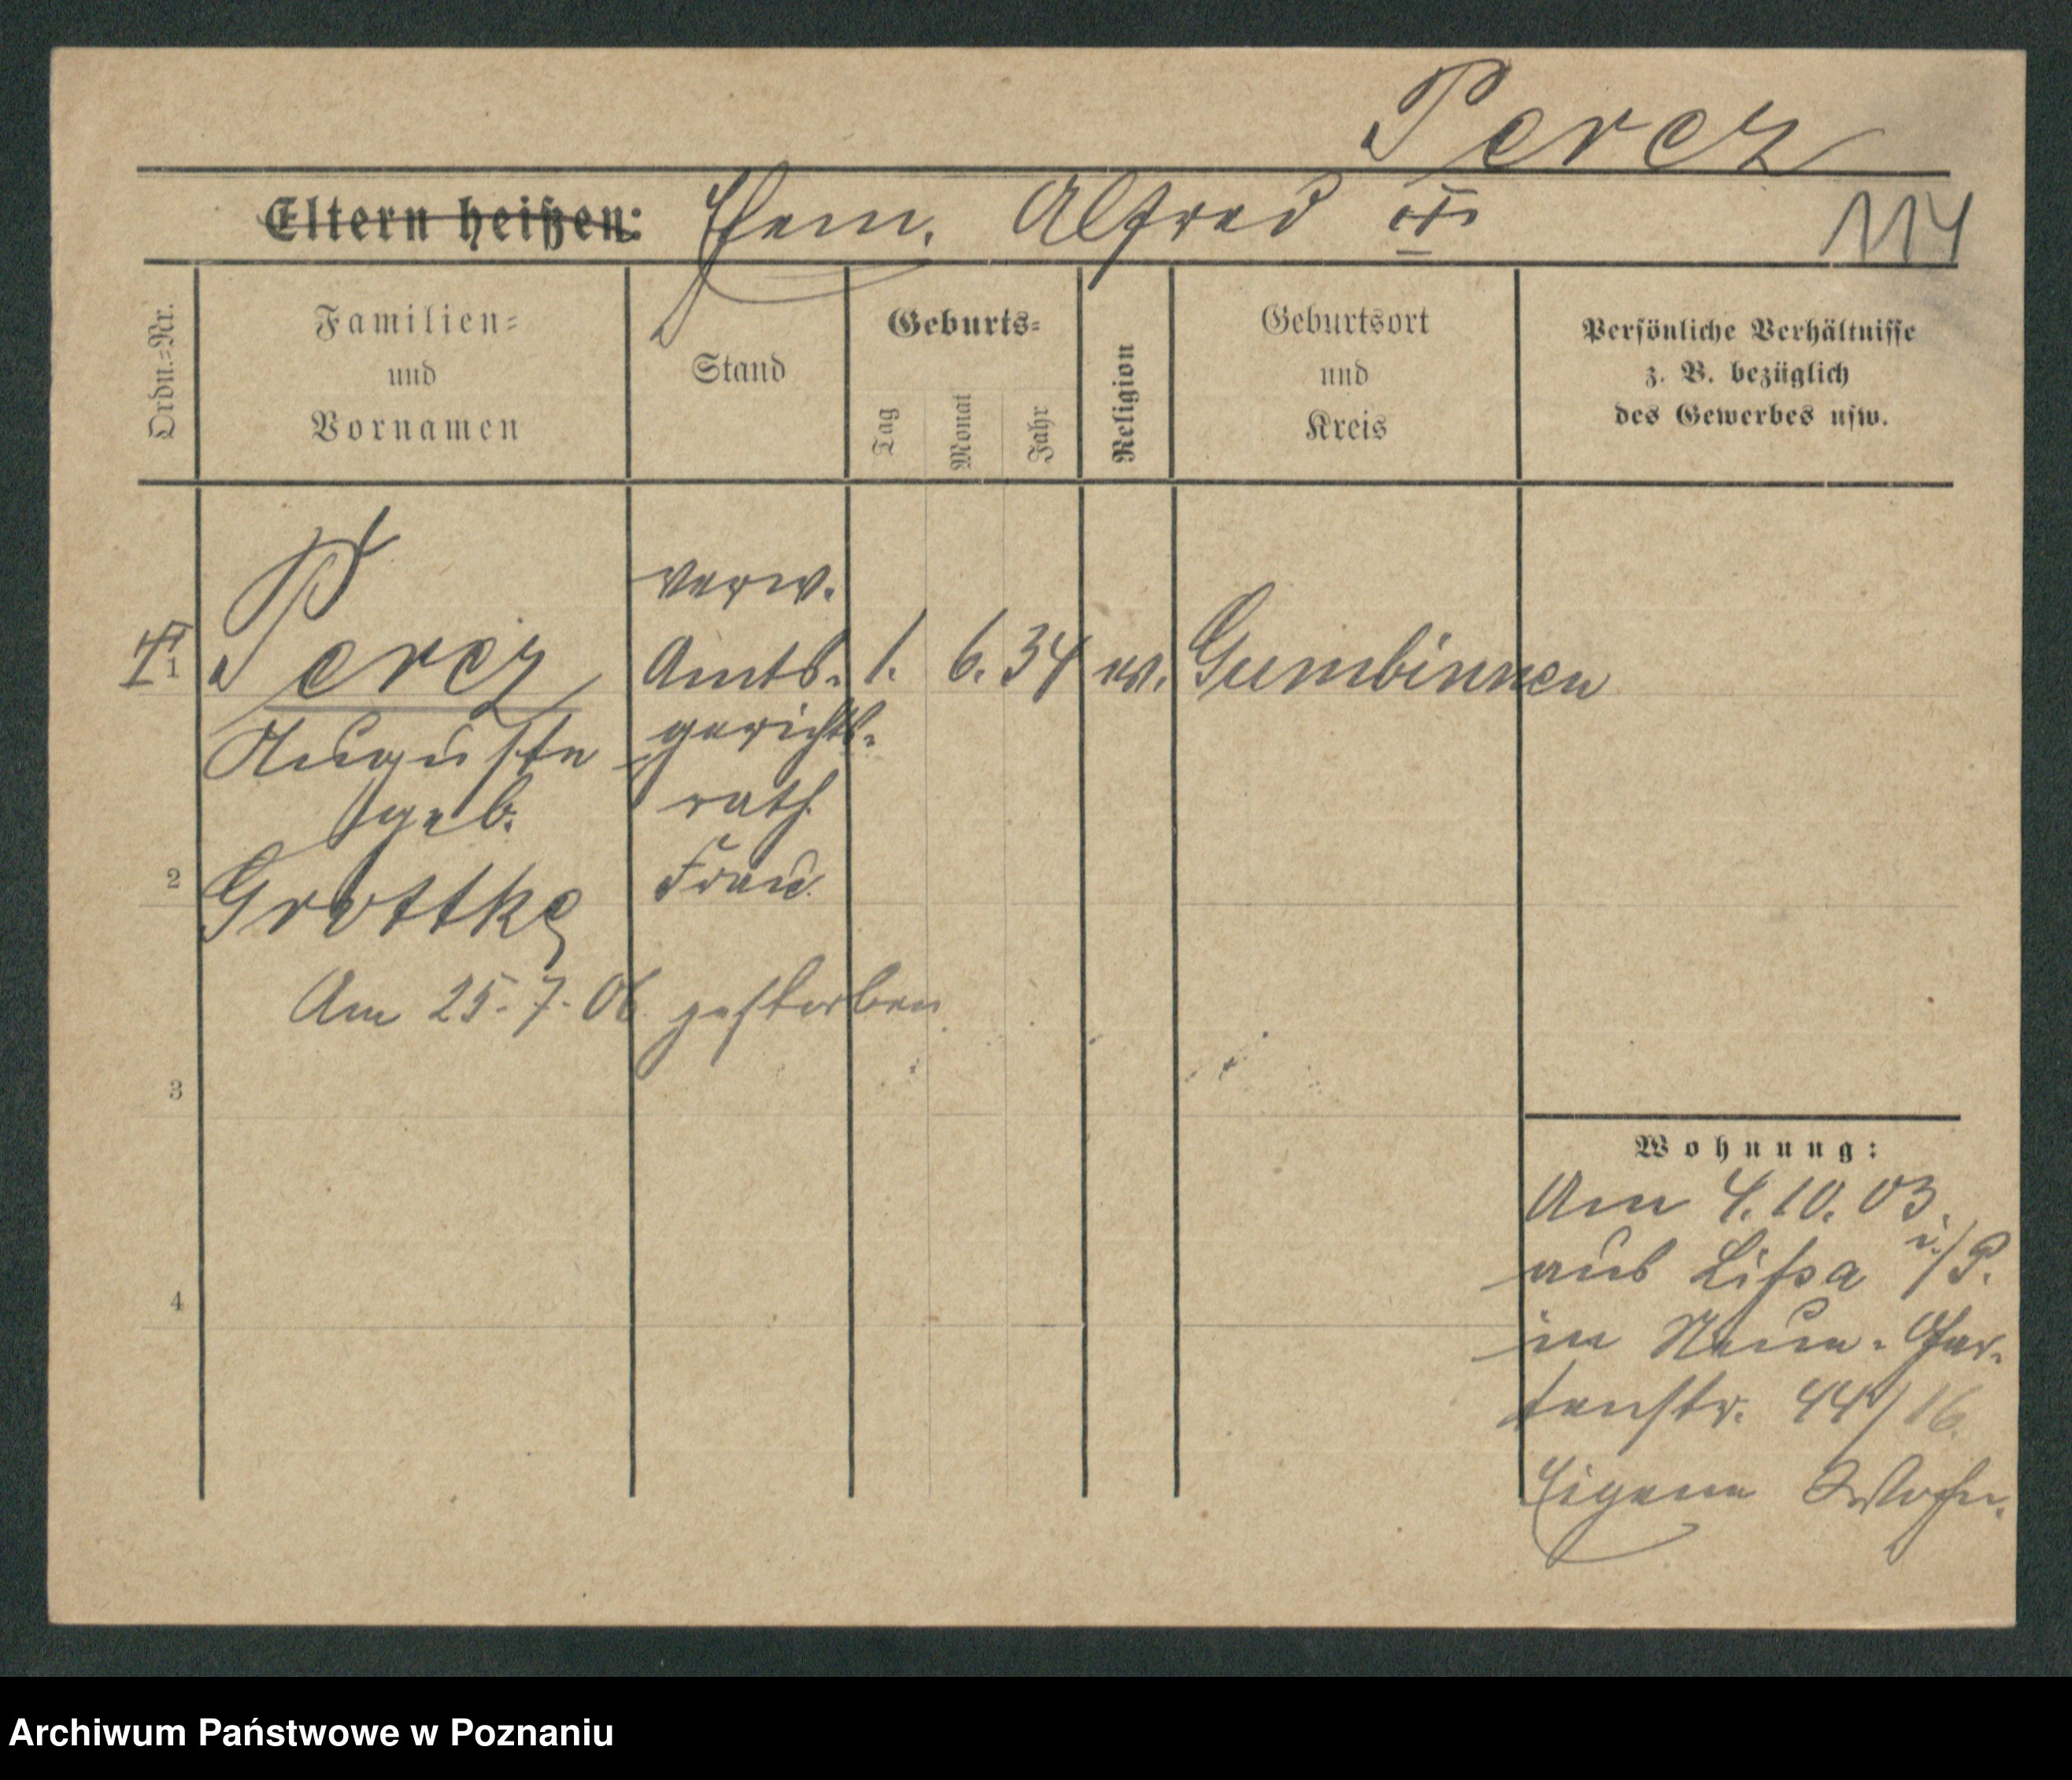 Percz
Eltern heißen: Ehem. Alfred
114
Ordn.=Nr.
Familien=
und
Vornamen
Stand
Geburts=
Tag
Monat
Jahr
Religion
Geburtsort
und
Kreis
Persönliche Verhältnisse
z. B. bezüglich
des Gewerbes usw.
1
Percz
Auguste
geb.
Grottke
verw.
Amts-
gerichts-
rath
Frau.
1. 6. 34 ev. Gumbinnen
2
Am 25.7.06. gestorben
3
4
Wohnung:
Am 4.10.03.
aus Lissa i./P.
in Neue-Gar-
tenstr. 44/16.
Eigene Wohn.
Archiwum Państwowe w Poznaniu